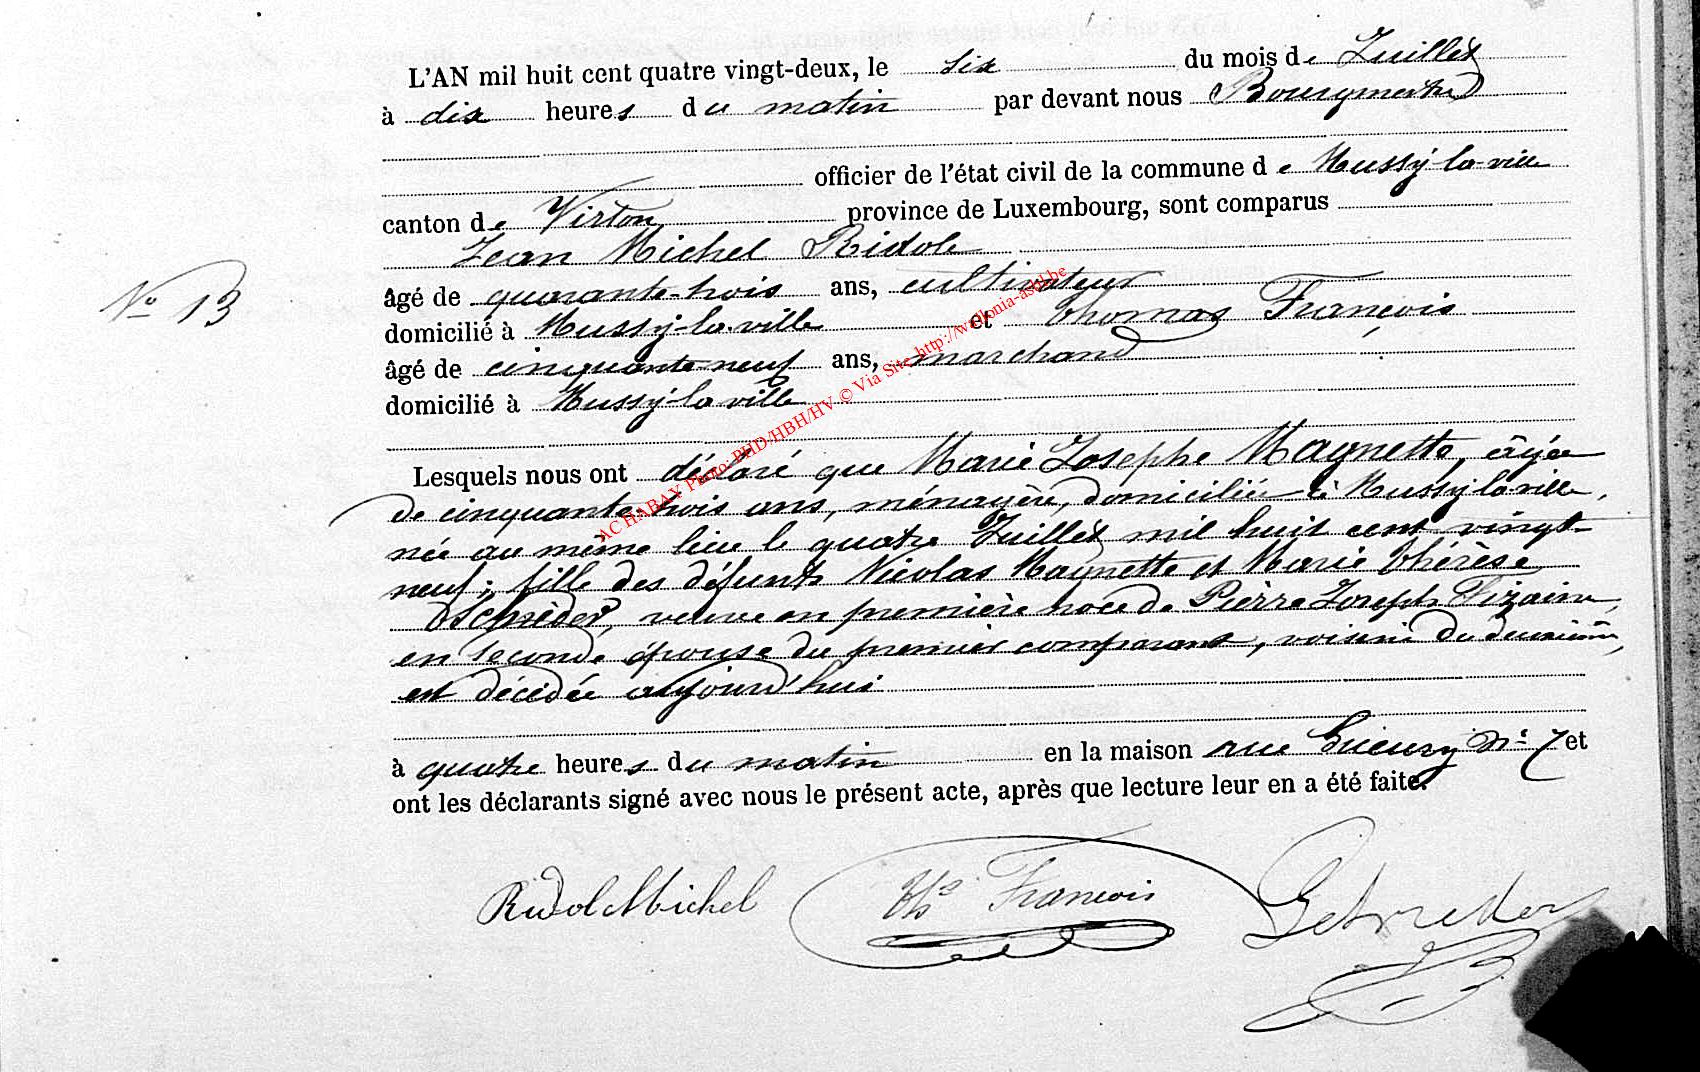 L'AN mil huit cent quatre vingt-deux, le six du mois de Juillet
à dix heures du matin par devant nous Bourgmestre
officier de l'état civil de la commune de Mussy-la-ville
canton de Virton province de Luxembourg, sont comparus
Jean Michel Ridole
N° 13
âgé de quarante-trois ans, cultivateur
domicilié à Mussy-la-ville et Thomas François
âgé de cinquante-neuf ans, marchand
domicilié à Mussy-la-ville
Lesquels nous ont déclaré que Marie Josephe Magnette, âgée
de cinquante-trois ans, ménagère, domiciliée à Mussy-la-ville,
née au même lieu le quatre Juillet mil huit cent vingt-
neuf; fille des défunts Nicolas Magnette et Marie Thérèse
Schréder, veuve en première noce de Pierre Joseph Fizaine,
en seconde épouse du premier comparant, voisine du deuxième,
est décédée aujourd'hui
à quatre heures du matin en la maison rue N° 7 et
ont les déclarants signé avec nous le présent acte, après que lecture leur en a été faite.
Ridole Michel Ths François Schreder
ACHABAY Photo: PHD/HBH/HV © Via Site http://wallonia-asbl.be